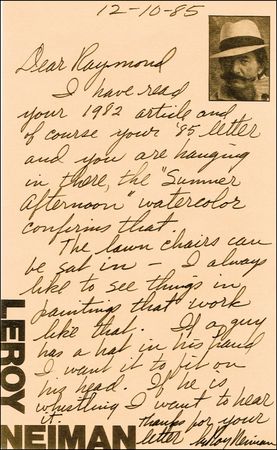 12-10-85
Dear Raymond
I have read
your 1982 article and
of course your '85 letter
and you are hanging
in there, the "Summer
Afternoon" watercolor
confirms that.
The lawn chairs can
be sat in – I always
like to see things in
paintings that work
like that. If a guy
has a hat in his hand
I want it to fit on
his head. If he is
whistling I want to hear
it.
Thanks for your
letter LeRoy Neiman
LEROY
NEIMAN